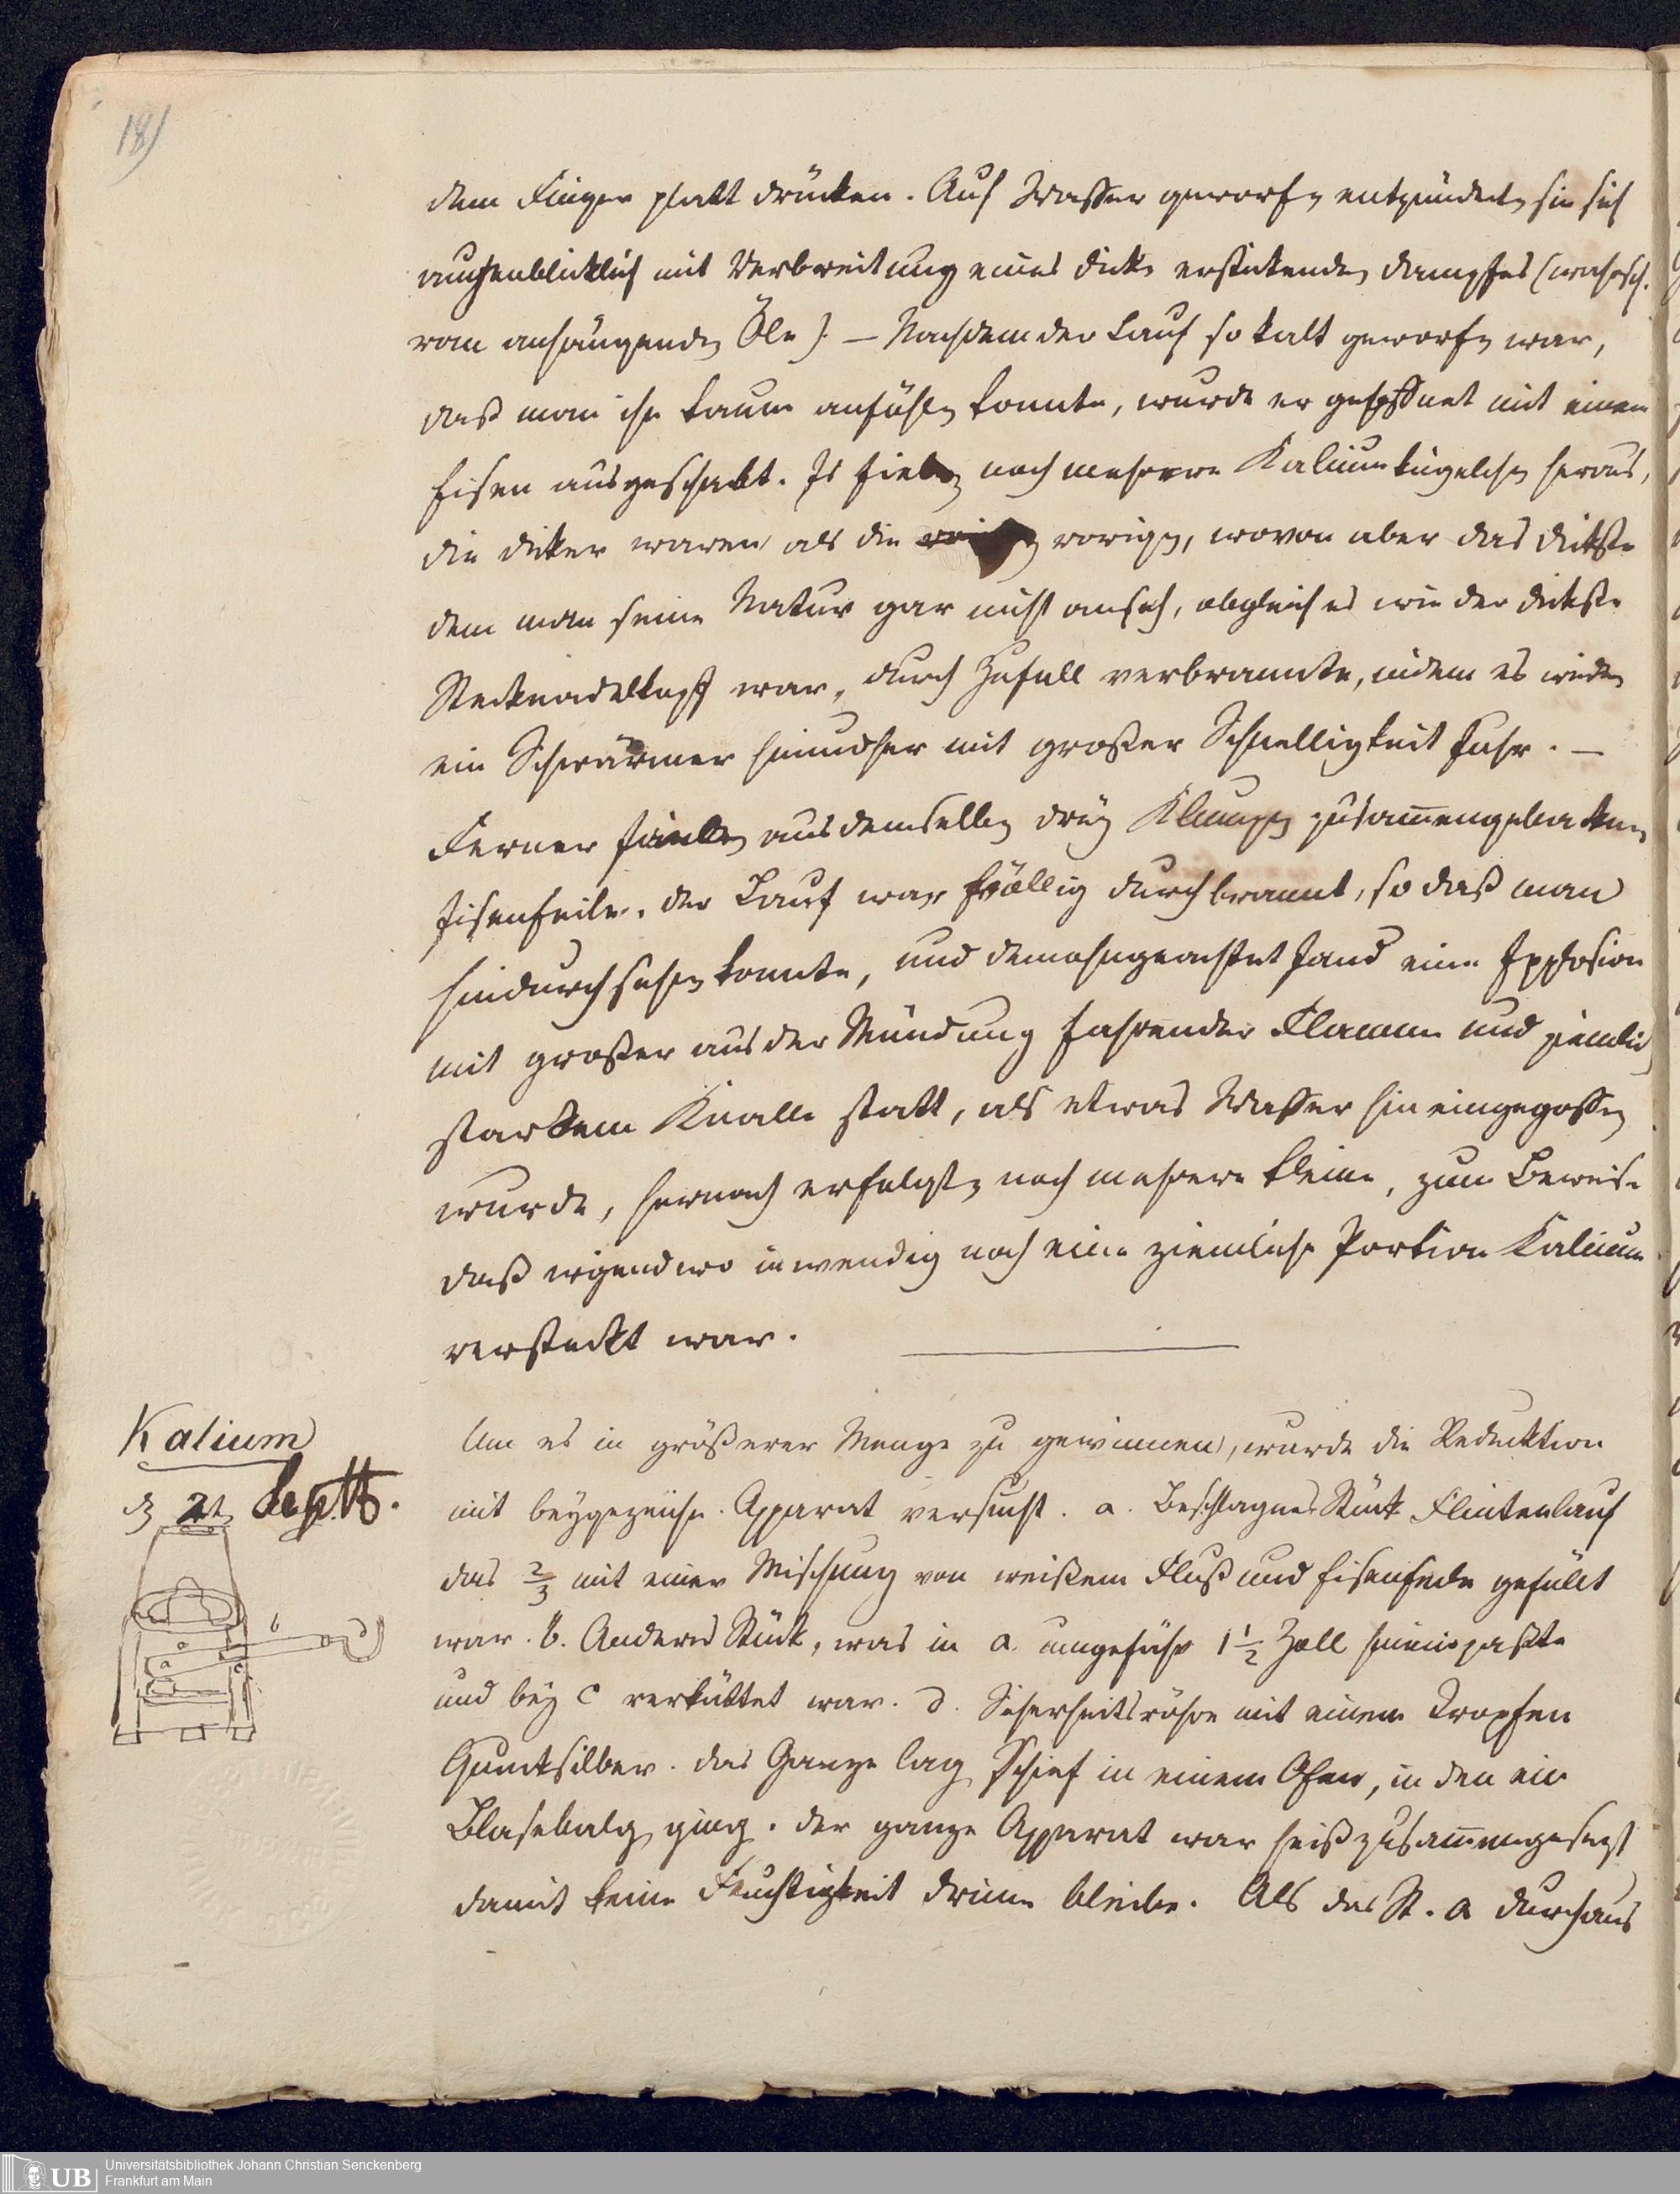 18)
dem Finger platt drücken. Auf Wasser geworfen entzündeten sie sich
augenblicklich mit Verbreitung eines dicken erstickenden Dampfes (wahrsch.
vom anhängenden Öle). – Nachdem der Lauf so kalt geworden war,
daß man ihn kaum anfühlen konnte, wurde er geöffnet mit einem
Eisen ausgeschabt. Es fielen noch mehrere Kaliumkügelchen heraus,
die dicker waren als die vorigen, wovon aber das dickste
dem man seine Natur gar nicht ansah, obgleich es wie der dickste
Stecknadelkopf war, durch Zufall verbrannte, indem es wie
ein Schwärmer hinundher mit großer Schnelligkeit fuhr. –
Ferner fielen aus demselben drey Klumpen zusam̅engebackener
Eisenfeile. Der Lauf war völlig durchbrannt, so daß man
hindurchsehen konnte, und demohngeachtet fand eine Explosion
mit großer aus der Mündung fahrender Flamme und ziemlich
starkem Knalle statt, als etwas Wasser hineingegossen
wurde, hernach erfolgten noch mehrere kleine, zum Beweise
daß irgendwo inwendig noch eine ziemliche Portion Kalium
versteckt war.
Kalium
d 21 Septb.
b
a
c
Um es in größerer Menge zu gewinnen, wurde die Reduktion
mit beygezeichn. Apparat versucht. a. Beschlagnes Stück Flintenlauf
das 2/3 mit einer Mischung von weißem Fluß und Eisenfeile gefüllt
war. b. Anderes Stück, was in a. ungefähr 1 1/2 Zoll hineinpaßte
und bey c verküttet war. d. Sicherheitsröhre mit einem Tropfen
Quecksilber. Das Ganze lag schief in einem Ofen, in den ein
Blasebalg ging. Der ganze Apparat war heiß zusam̅engesetzt
damit keine Feuchtigkeit drinne bleibe. Als das St. a durchaus
UB
Universitätsbibliothek Johann Christian Senckenberg
Frankfurt am Main